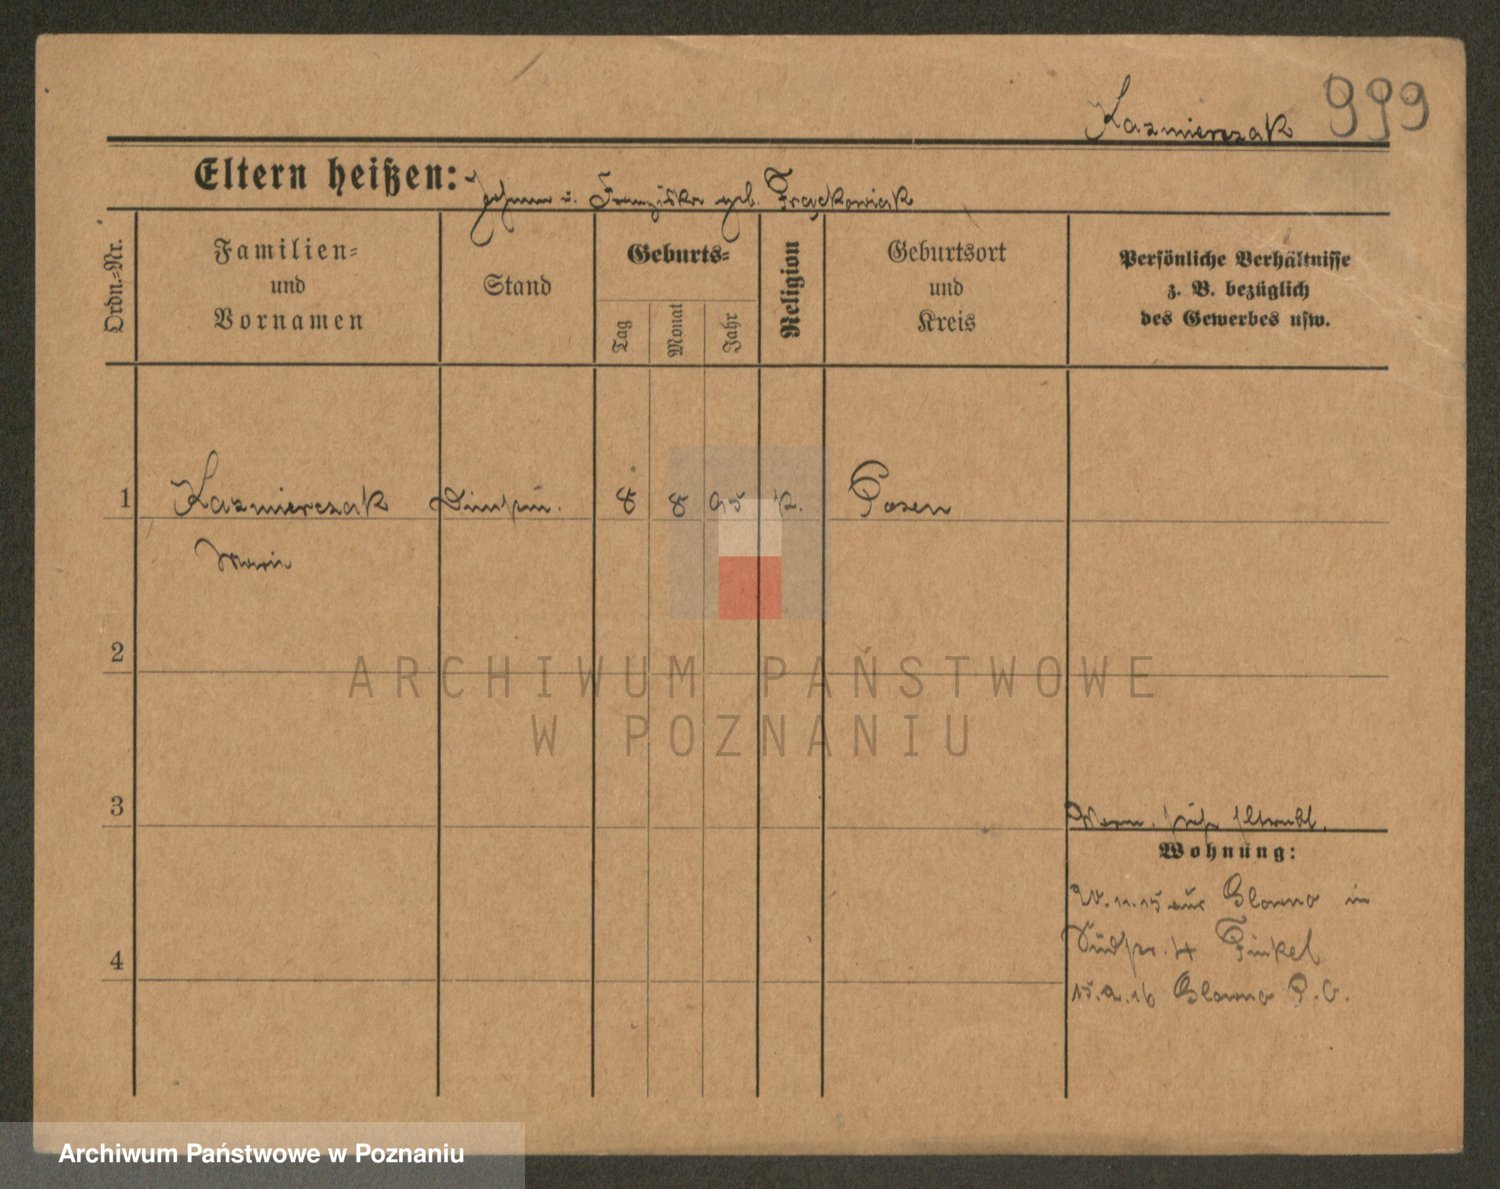 Kazmierczak 999
Eltern heißen: Johann u. Franziska geb. Frąckowiak
Ordn.-Nr.
Familien-
und
Vornamen
Stand
Geburts-
Tag
Monat
Jahr
Religion
Geburtsort
und
Kreis
Persönliche Verhältnisse
z. B. bezüglich
des Gewerbes usw.
1 Kazmierczak 8 8 95 k. Posen
Marie
2
ARCHIWUM PAŃSTWOWE
W POZNANIU
3
Wohnung:
20.11.15 aus Glowno in
4 Finkel
15.2.16 Glowno P.O.
Archiwum Państwowe w Poznaniu